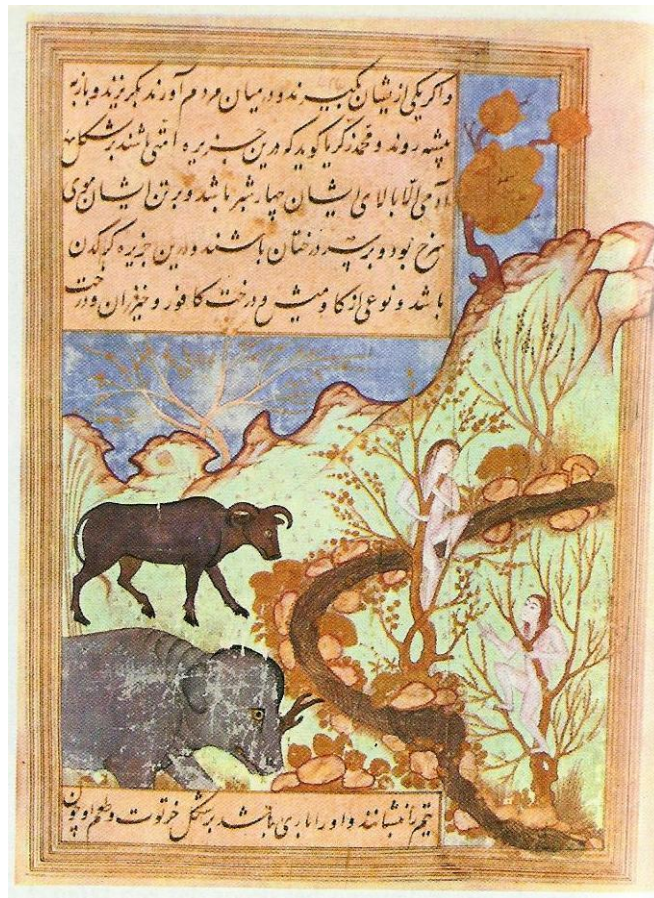 و اگر یکی ازیشان بگیرند و در میان مردم آورند بگریزند و باز به
بیشه روند و محمد زکریا گوید که درین جزیره امتی باشند بر شکل
آدمی الا بالای ایشان چهار شبر باشد و بر تن ایشان موی
سرخ بود و بر سر درختان باشند و درین جزیره کرکدن
باشد و نوعی از کاومیش و درخت کافور و خیزران و درخت
بقم بنشانند و او را باری باشد بر شکل خرتوت و طعم او چون